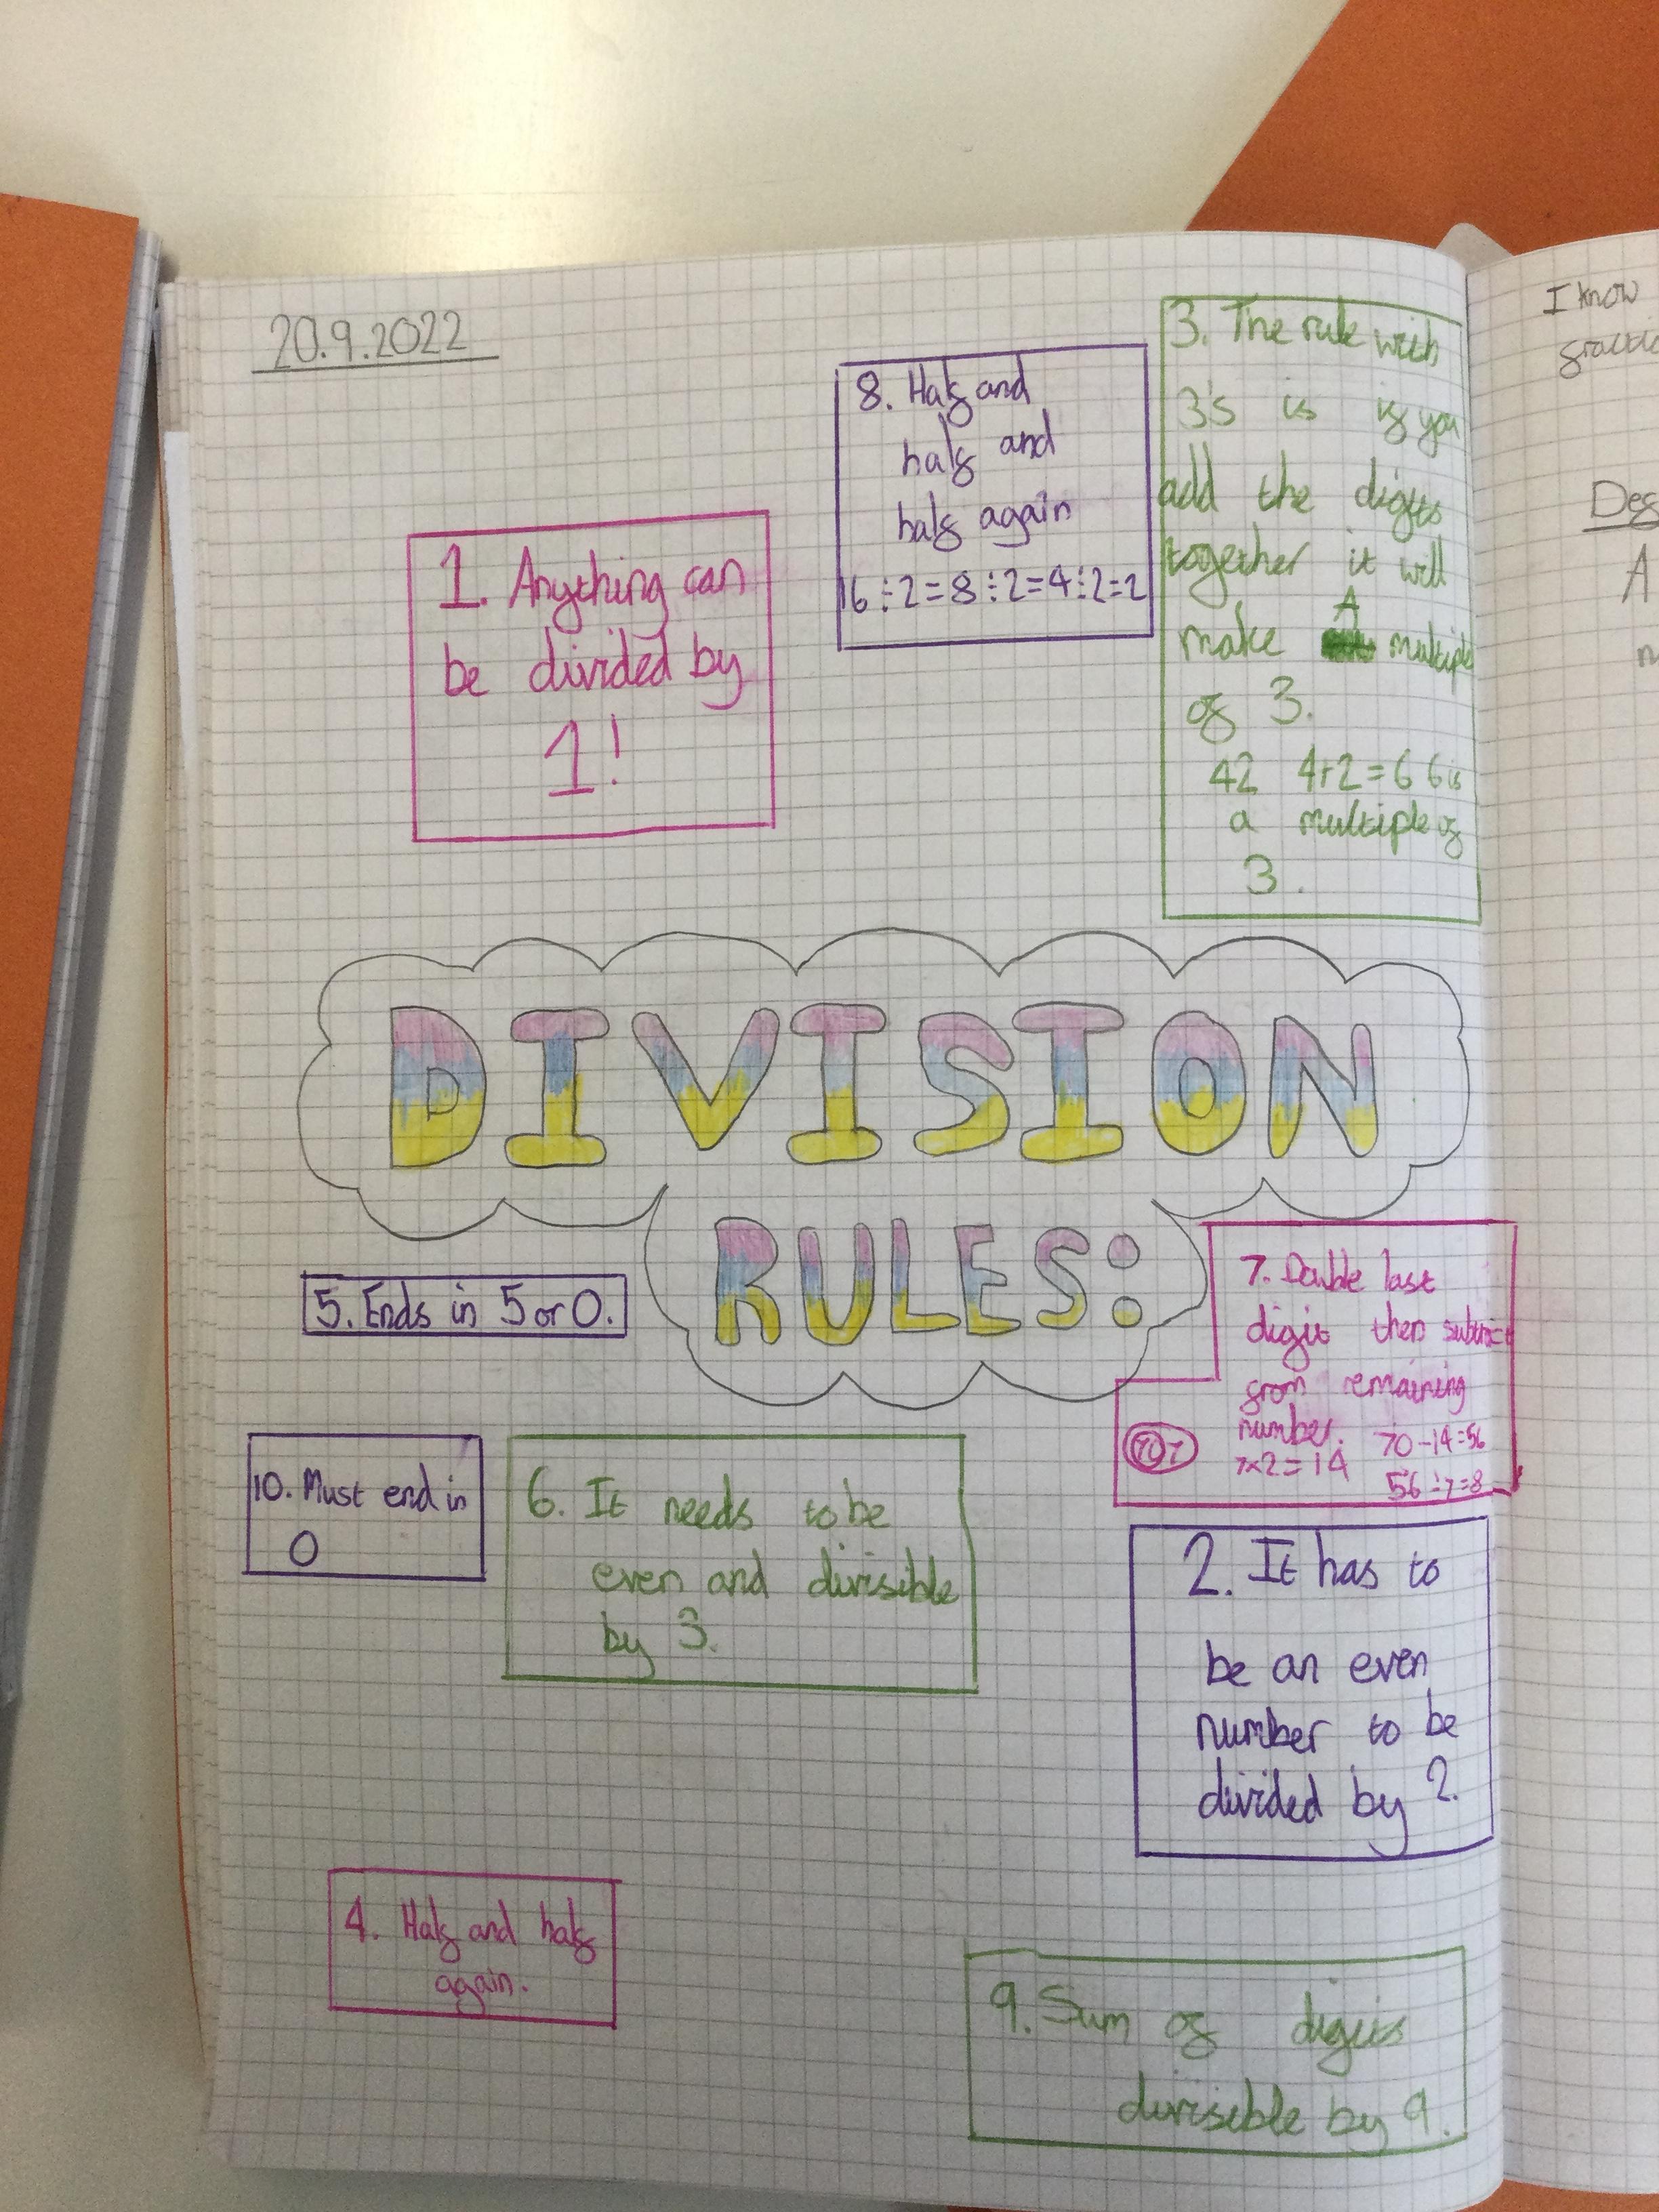 20.9.2022
8. Half and
half and
half again
16÷2=8÷2=4÷2=2
3. The rule with
3's is if you
add the digits
together it will
make A multiple
of 3.
42 4+2=6 6 is
a multiple of
3.
1. Anything can
be divided by
1!
DIVISION
RULES:
5. Ends in 5 or 0.
7. Double last
digit then subtract
from remaining
number.
707
7×2=14
70-14=56
56÷7=8
10. Must end in
0
6. It needs to be
even and divisible
by 3.
2. It has to
be an even
number to be
divided by 2.
4. Half and half
again.
9. Sum of digits
divisible by 9.
I know
Des
A